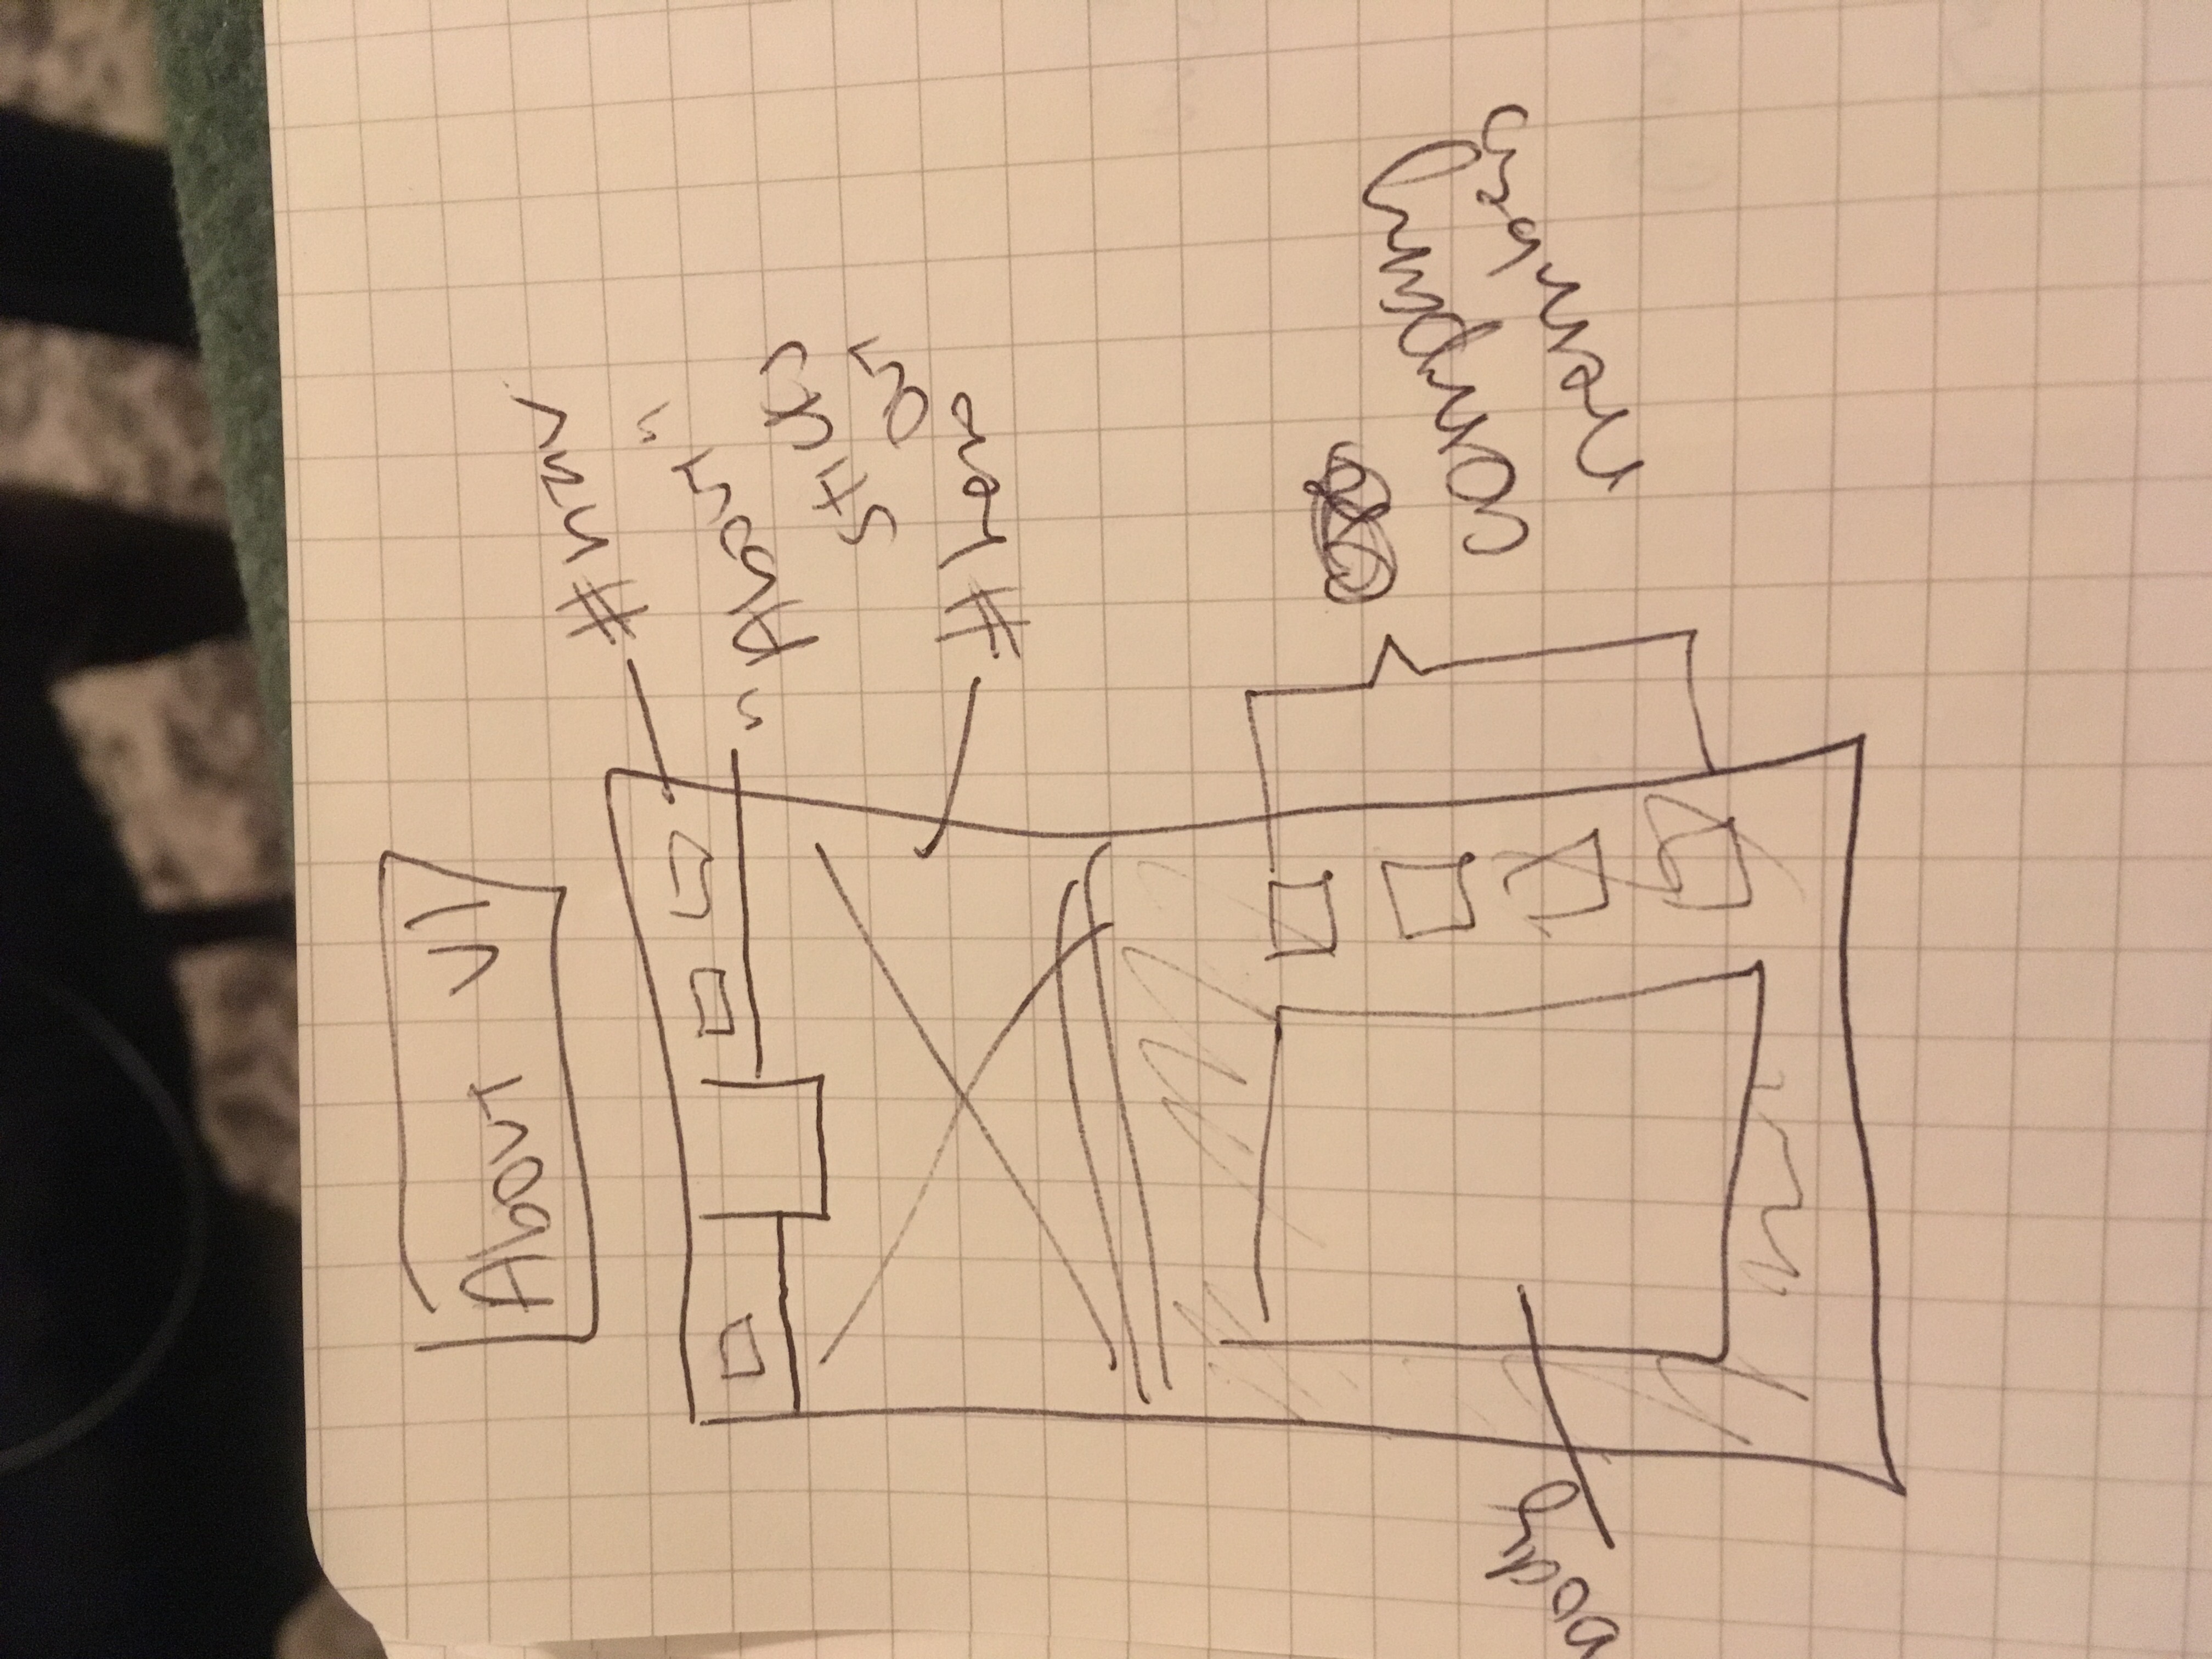 About V1
#nav
"About"
sticks
out
#hero
company
members
body